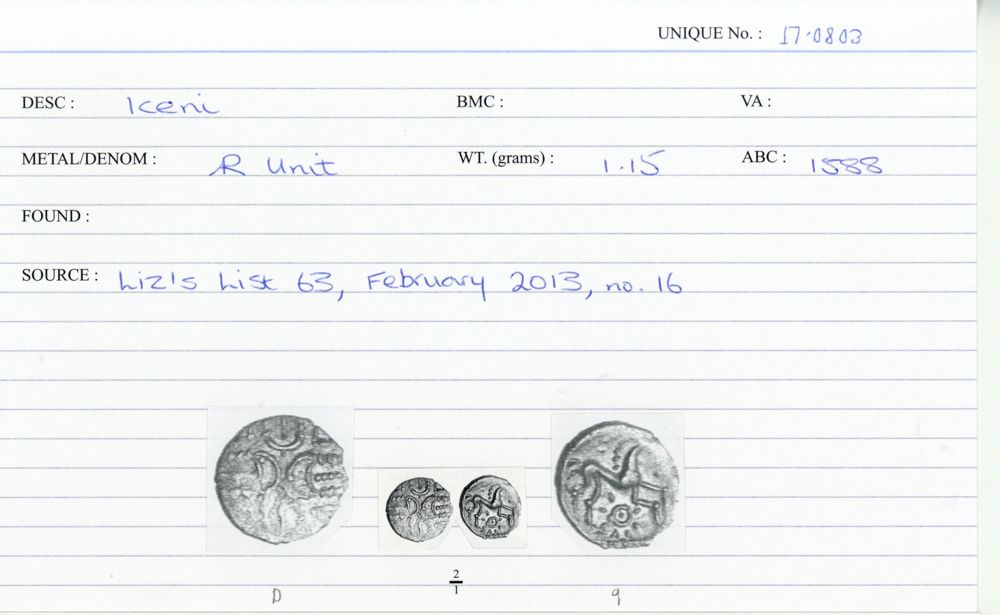 UNIQUE No. : 17·0803
DESC : Iceni BMC : VA :
METAL/DENOM : R Unit WT. (grams) : 1.15 ABC : 1588
FOUND :
SOURCE : Liz's List 63, February 2013, no. 16
2
1
D q